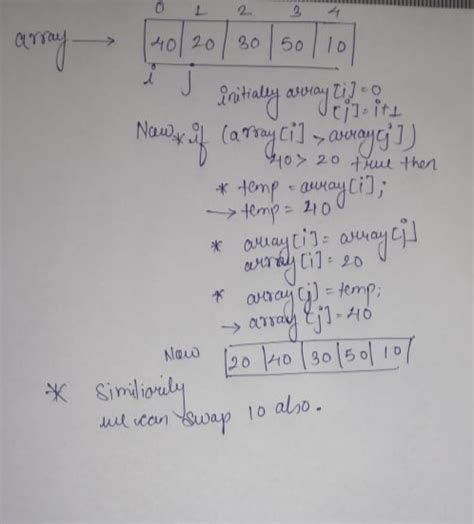 0 1 2 3 4
array → 40 20 30 50 10
i j
initially array[i]=0
[j]=i+1
Now * if (array[i] > array[j])
40 > 20 true then
* temp = array[i];
→ temp = 40
* array[i] = array[j]
array[i] = 20
* array[j] = temp;
→ array[j] = 40
Now 20 40 30 50 10
* Similiarily
we can swap 10 also.